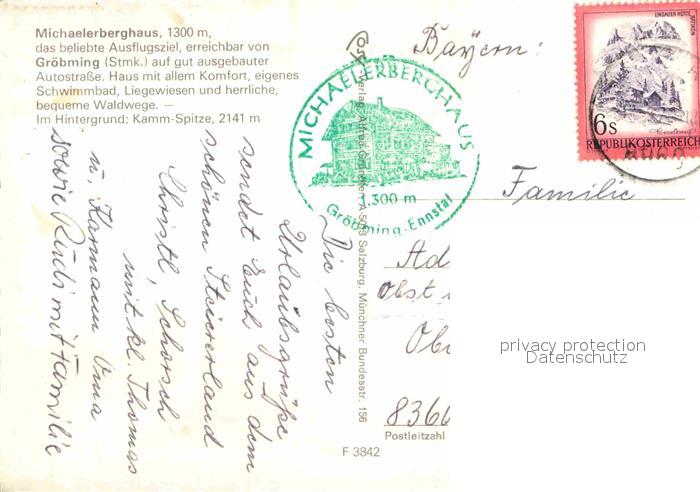 Michaelerberghaus, 1300 m,
das beliebte Ausflugsziel, erreichbar von
Gröbming (Stmk.) auf gut ausgebauter
Autostraße. Haus mit allem Komfort, eigenes
Schwimmbad, Liegewiesen und herrliche,
bequeme Waldwege. —
Im Hintergrund: Kamm-Spitze, 2141 m
Die besten
Urlaubsgrüße
sendet Euch aus dem
schönen Steiererland
Christl, Schorsch
mit kl. Thomas
u. Oma
sowie Rudi mit Familie
MICHAELERBERGHAUS
1.300 m
Gröbming-Ennstal
A-5013 Salzburg, Münchner Bundesstr. 156
F 3842
Bayern:
LINDAUER HÜTTE
6s
REPUBLIK ÖSTERREICH
Familie
Ad
Obst
Ob
8366
Postleitzahl
privacy protection
Datenschutz